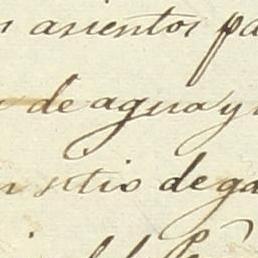 asientos pa
de agua y
n sitio de ga